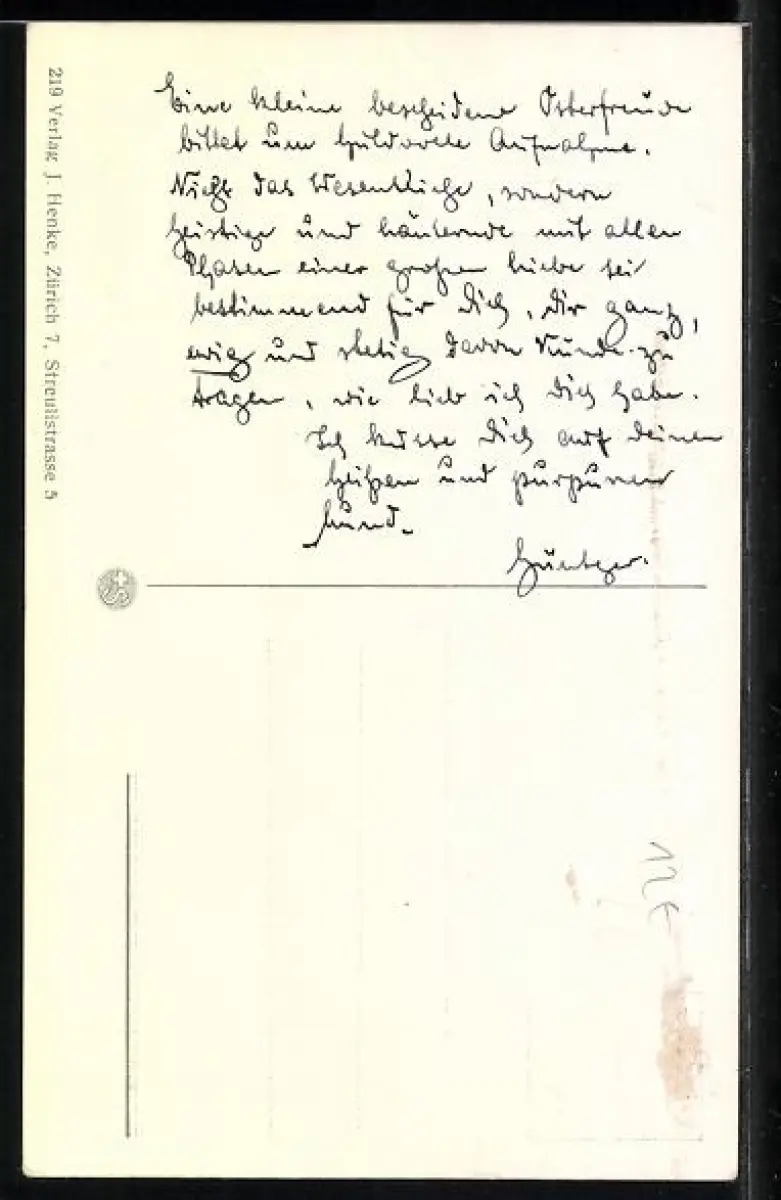 Eine kleine bescheidene Osterfreude
bittet um huldvolle Aufnahme.
Nicht das Wesentliche, sondern
Geistige und läuternde mit allen
Phasen einer großen Liebe sei
bestimmend für Dich, Dir ganz,
ewig und stetig davon Kunde zu
tragen, wie lieb ich Dich habe.
Ich küsse Dich auf deinen
heißen und purpurnen
Mund.
Günther.
219 Verlag J. Henke, Zürich 7, Streulistrasse 5